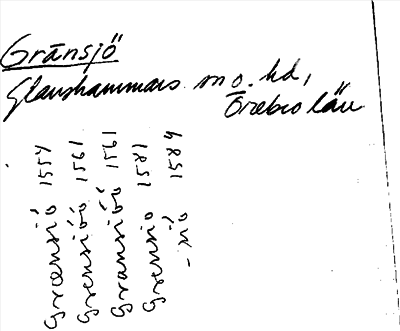 Gränsjö
Glanshammars sn o. hd,
Örebro län
Grænsiö 1554
Grensiöö 1561
Gransiöö 1561
Grensio 1581
- siö 1584